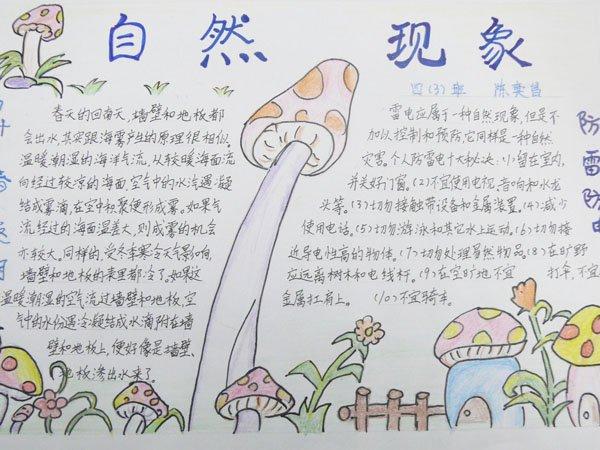 自然现象
四(3)班 陈奕昌
春天的回南天,墙壁和地板都
会出水其实跟海雾产生的原理很相似。
温暖潮湿的海洋气流,从较暖海面流
向经过较凉的海面,空气中的水汽遇凝
结成雾滴,在空中积聚便形成雾。如果气
流经过的海面温差大,则成雾的机会
亦较大,同样的,受冬季寒冷天气影响,
墙壁和地板的表里都冷了。如果这
温暖潮湿的空气流过墙壁和地板,空
气中的水份遇冷凝结成水滴附在墙
壁和地板上,便好像是墙壁、
地板渗出水来了。
雷电应属于一种自然现象,但是不
加以控制和预防,它同样是一种自然
灾害。个人防雷电十大秘决:(1)留在室内,
并关好门窗。(2)不宜使用电视、音响和水龙
头等。(3)切勿接触带设备和金属装置。(4)减少
使用电话。(5)切勿游泳和其它水上运动。(6)切勿接
近导电性高的物体。(7)切勿处理易然物品。(8)在旷野
应远离树木和电线杆。(9)在空旷地不宜 打伞,不宜
金属扛肩上。 (10)不宜骑车。
防雷防